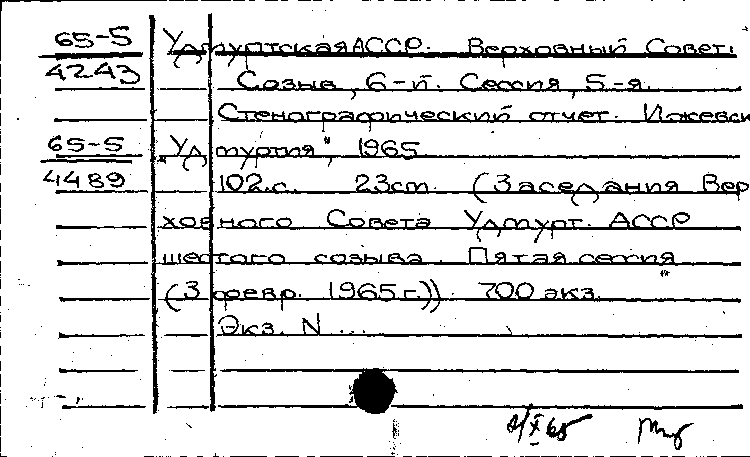 65-5 Удмуртская АССР. Верховный Совет.
4243 Созыв, 6-й. Сессия, 5-я.
Стенографический отчет. Ижевск
65-5 "Удмуртия", 1965
4489 102.с. 23см. (Заседания Вер
ховного Совета Удмурт. АССР
шестого созыва. Пятая сессия
(3 февр. 1965 г.)). 700 экз.
Экз. N ...
X 65